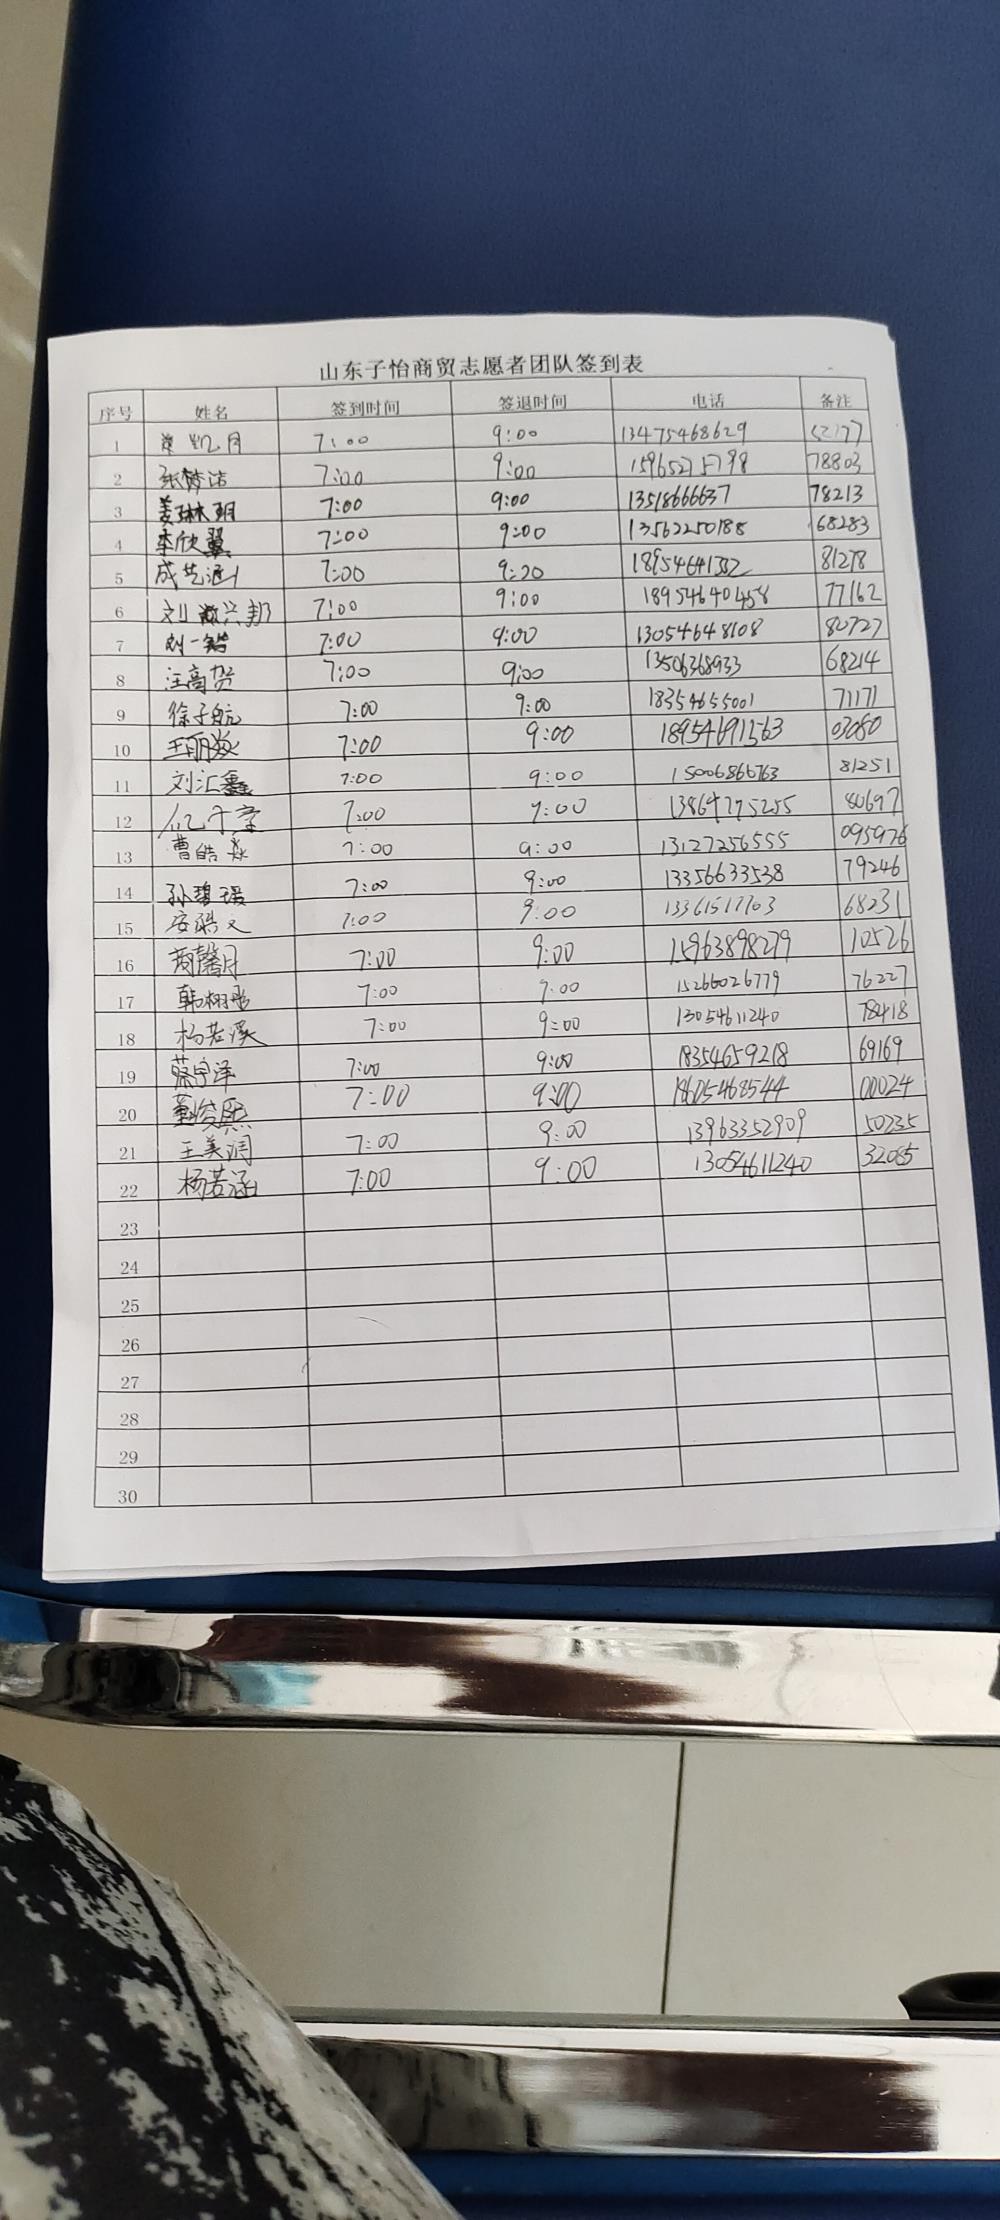 山东子怡商贸志愿者团队签到表
序号 姓名 签到时间 签退时间 电话 备注
1 7:00 9:00 13475468629
2 张梦洁 7:00 9:00 78803
3 姜琳玥 7:00 9:00 13518666637 78213
4 李欣翼 7:00 9:00 13562250188 68283
5 7:00 9:20 81278
6 7:00 9:00 18954640458 77162
7 刘一锴 7:00 9:00 13054648108 80727
8 汪高贺 7:00 9:00 13506368933 68214
9 徐子航 7:00 9:00 18354655001 71171
10 7:00 9:00 18954691563 03080
11 刘汇鑫 7:00 9:00 15006866763 81251
12 7:00 9:00 13864775255 80697
13 曹皓焱 7:00 9:00 13127256555 095976
14 孙碧瑶 7:00 9:00 13356633538 79246
15 7:00 9:00 13361517703 68231
16 商馨月 7:00 9:00 15963898279 10526
17 7:00 9:00 15266026779 76227
18 杨若溪 7:00 9:00 13054611240 78418
19 蔡宇泽 7:00 9:00 18354659218 69169
20 董俊熙 7:00 9:00 18605468544 00024
21 王美润 7:00 9:00 13963352909 50235
22 杨若涵 7:00 9:00 13054611240 32085
23
24
25
26
27
28
29
30